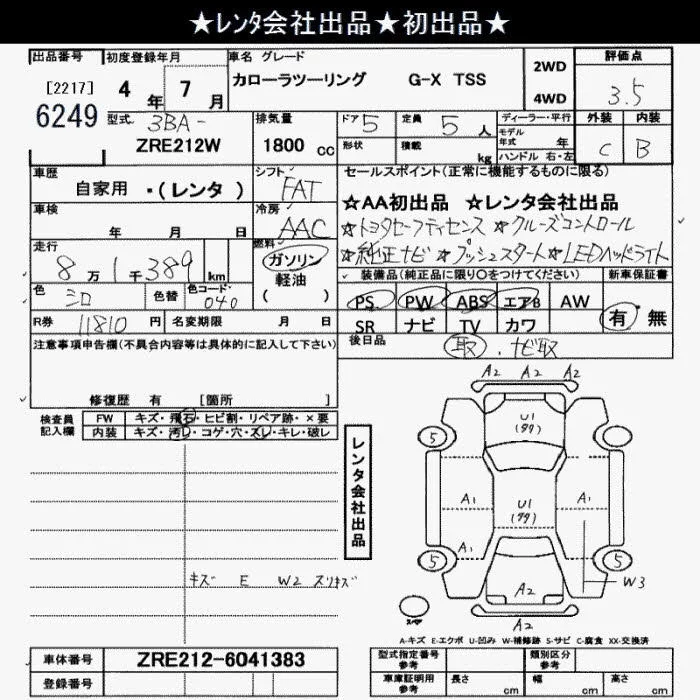 ★レンタ会社出品★初出品★
出品番号 初度登録年月 車名 グレード 評価点
[2217] 4年 7月 カローラツーリング G-X TSS 2WD 3.5
6249 4WD
型式 3BA- 排気量 ドア 5 定員 5人 ディーラー・平行 外装 内装
ZRE212W 1800cc 形状 積載 kg モデル年式 年 C B
ハンドル 右・左
車歴 シフト セールスポイント(正常に機能するものに限る)
自家用・(レンタ) FAT ☆AA初出品 ☆レンタ会社出品
車検 冷房 ☆トヨタセーフティセンス ☆クルーズコントロール
年 月 日 AAC ☆純正ナビ ☆プッシュスタート ☆LEDヘッドライト
走行 燃料 装備品(純正品に限り○をつけてください) 新車保証書
8万1千389km ガソリン PS PW ABS エアB AW 有・無
軽油
( )
色 シロ 色替 色コード 040 SR ナビ TV カワ
R券 11810円 名変期限 月 日 後日品 取 ナビ取
注意事項申告欄(不具合内容等は具体的に記入して下さい)
修復歴 有 [箇所 ]
A2 A2 A2
検査員記入欄 FW キズ・飛石・ヒビ割・リペア跡・×要
内装 キズ・汚レ・コゲ・穴・ズレ・キレ・破レ
U1
(99)
5
レンタ会社出品
A1 U1 A1
(99)
A1
5 5
キズ E W2 スリキズ
W3
A2
A2
スペア
A-キズ E-エクボ U-凹み W-補修跡 S-サビ C-腐食 XX-交換済
車体番号 ZRE212-6041383 型式指定番号 参考 類別区分 参考
登録番号 車庫証明用 参考 長さ cm 幅 cm 高さ cm